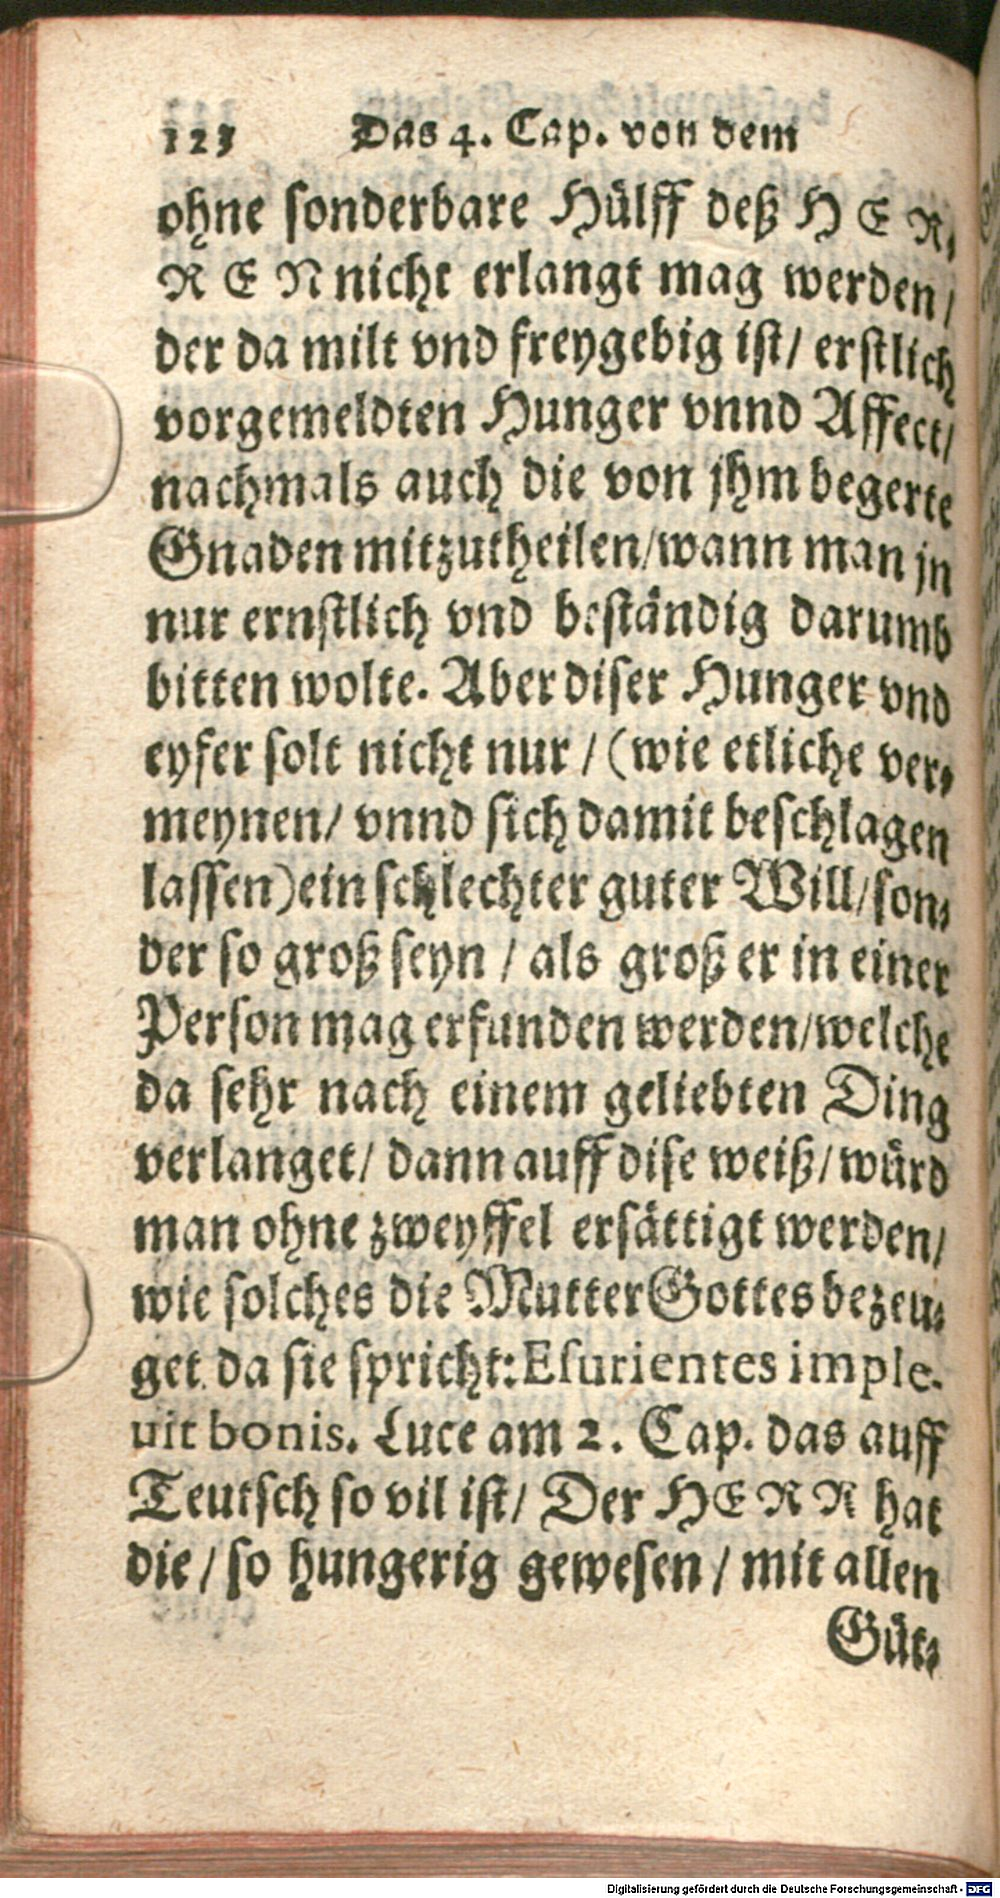 123 Das 4. Cap. von dem
ohne sonderbare Hülff deß HER-
REN nicht erlangt mag werden/
der da milt vnd freygebig ist/ erstlich
vorgemeldten Hunger vnnd Affect/
nachmals auch die von jhm begerte
Gnaden mitzutheilen/wann man jn
nur ernstlich vnd beständig darumb
bitten wolte. Aber diser Hunger vnd
eyfer solt nicht nur / (wie etliche ver-
meynen/ vnnd sich damit beschlagen
lassen) ein schlechter guter Will/son-
der so groß seyn / als groß er in einer
Person mag erfunden werden/welche
da sehr nach einem geliebten Ding
verlanget/ dann auff dise weiß/ würd
man ohne zweyffel ersättigt werden/
wie solches die Mutter Gottes bezeu-
get da sie spricht: Esurientes imple-
uit bonis. Luce am 2. Cap. das auff
Teutsch so vil ist/ Der HERR hat
die / so hungerig gewesen / mit allen
Güt-
Digitalisierung gefördert durch die Deutsche Forschungsgemeinschaft - DFG